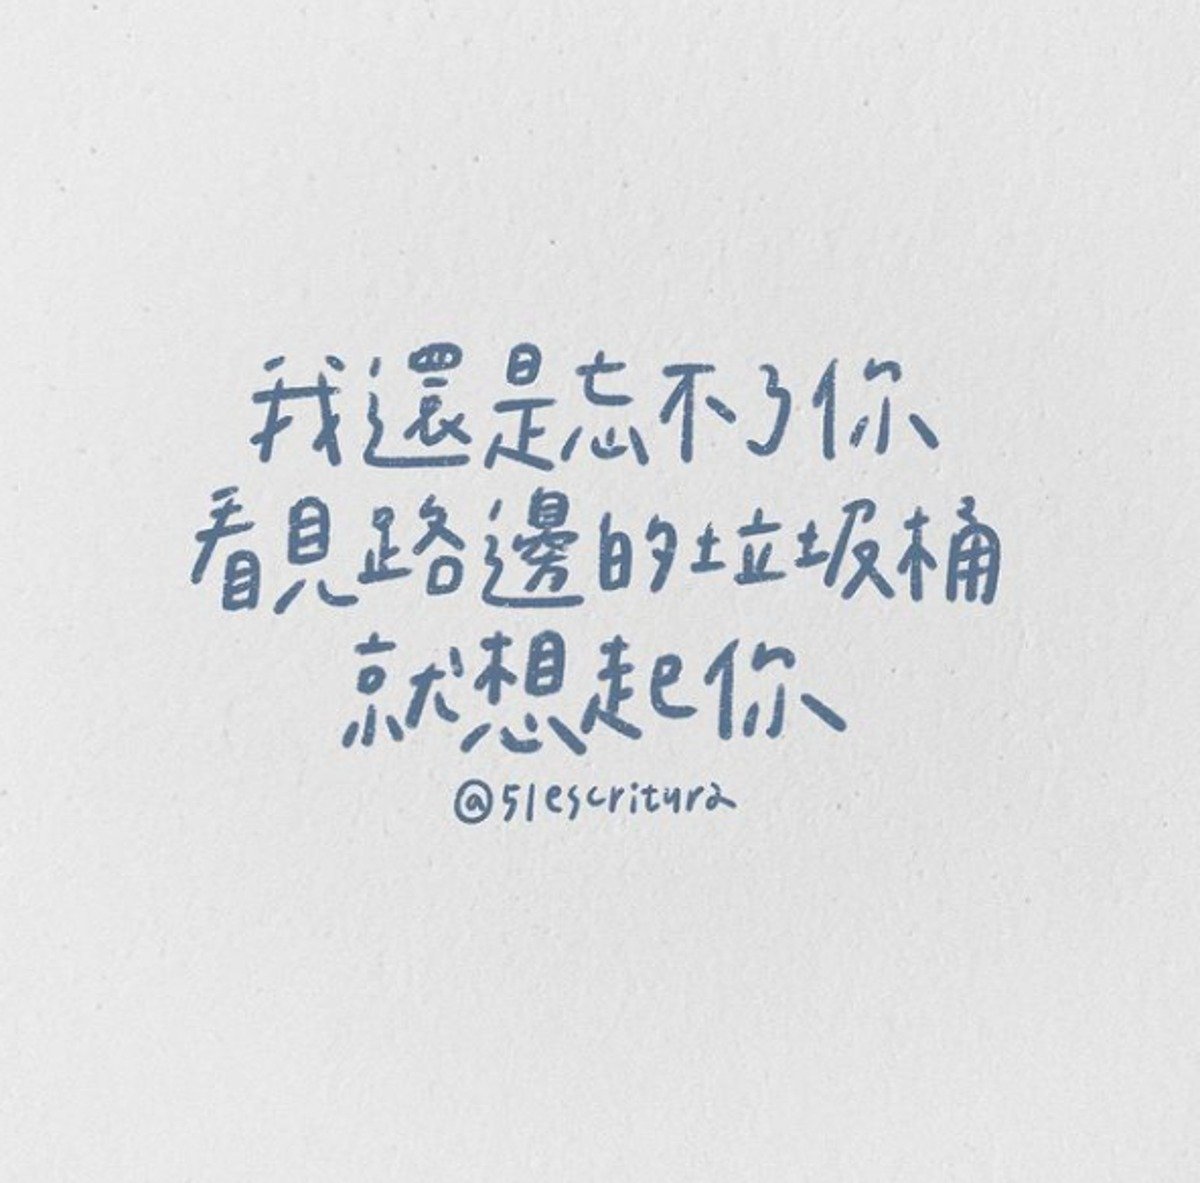 我還是忘不了你
看見路邊的垃圾桶
就想起你
@51escritura